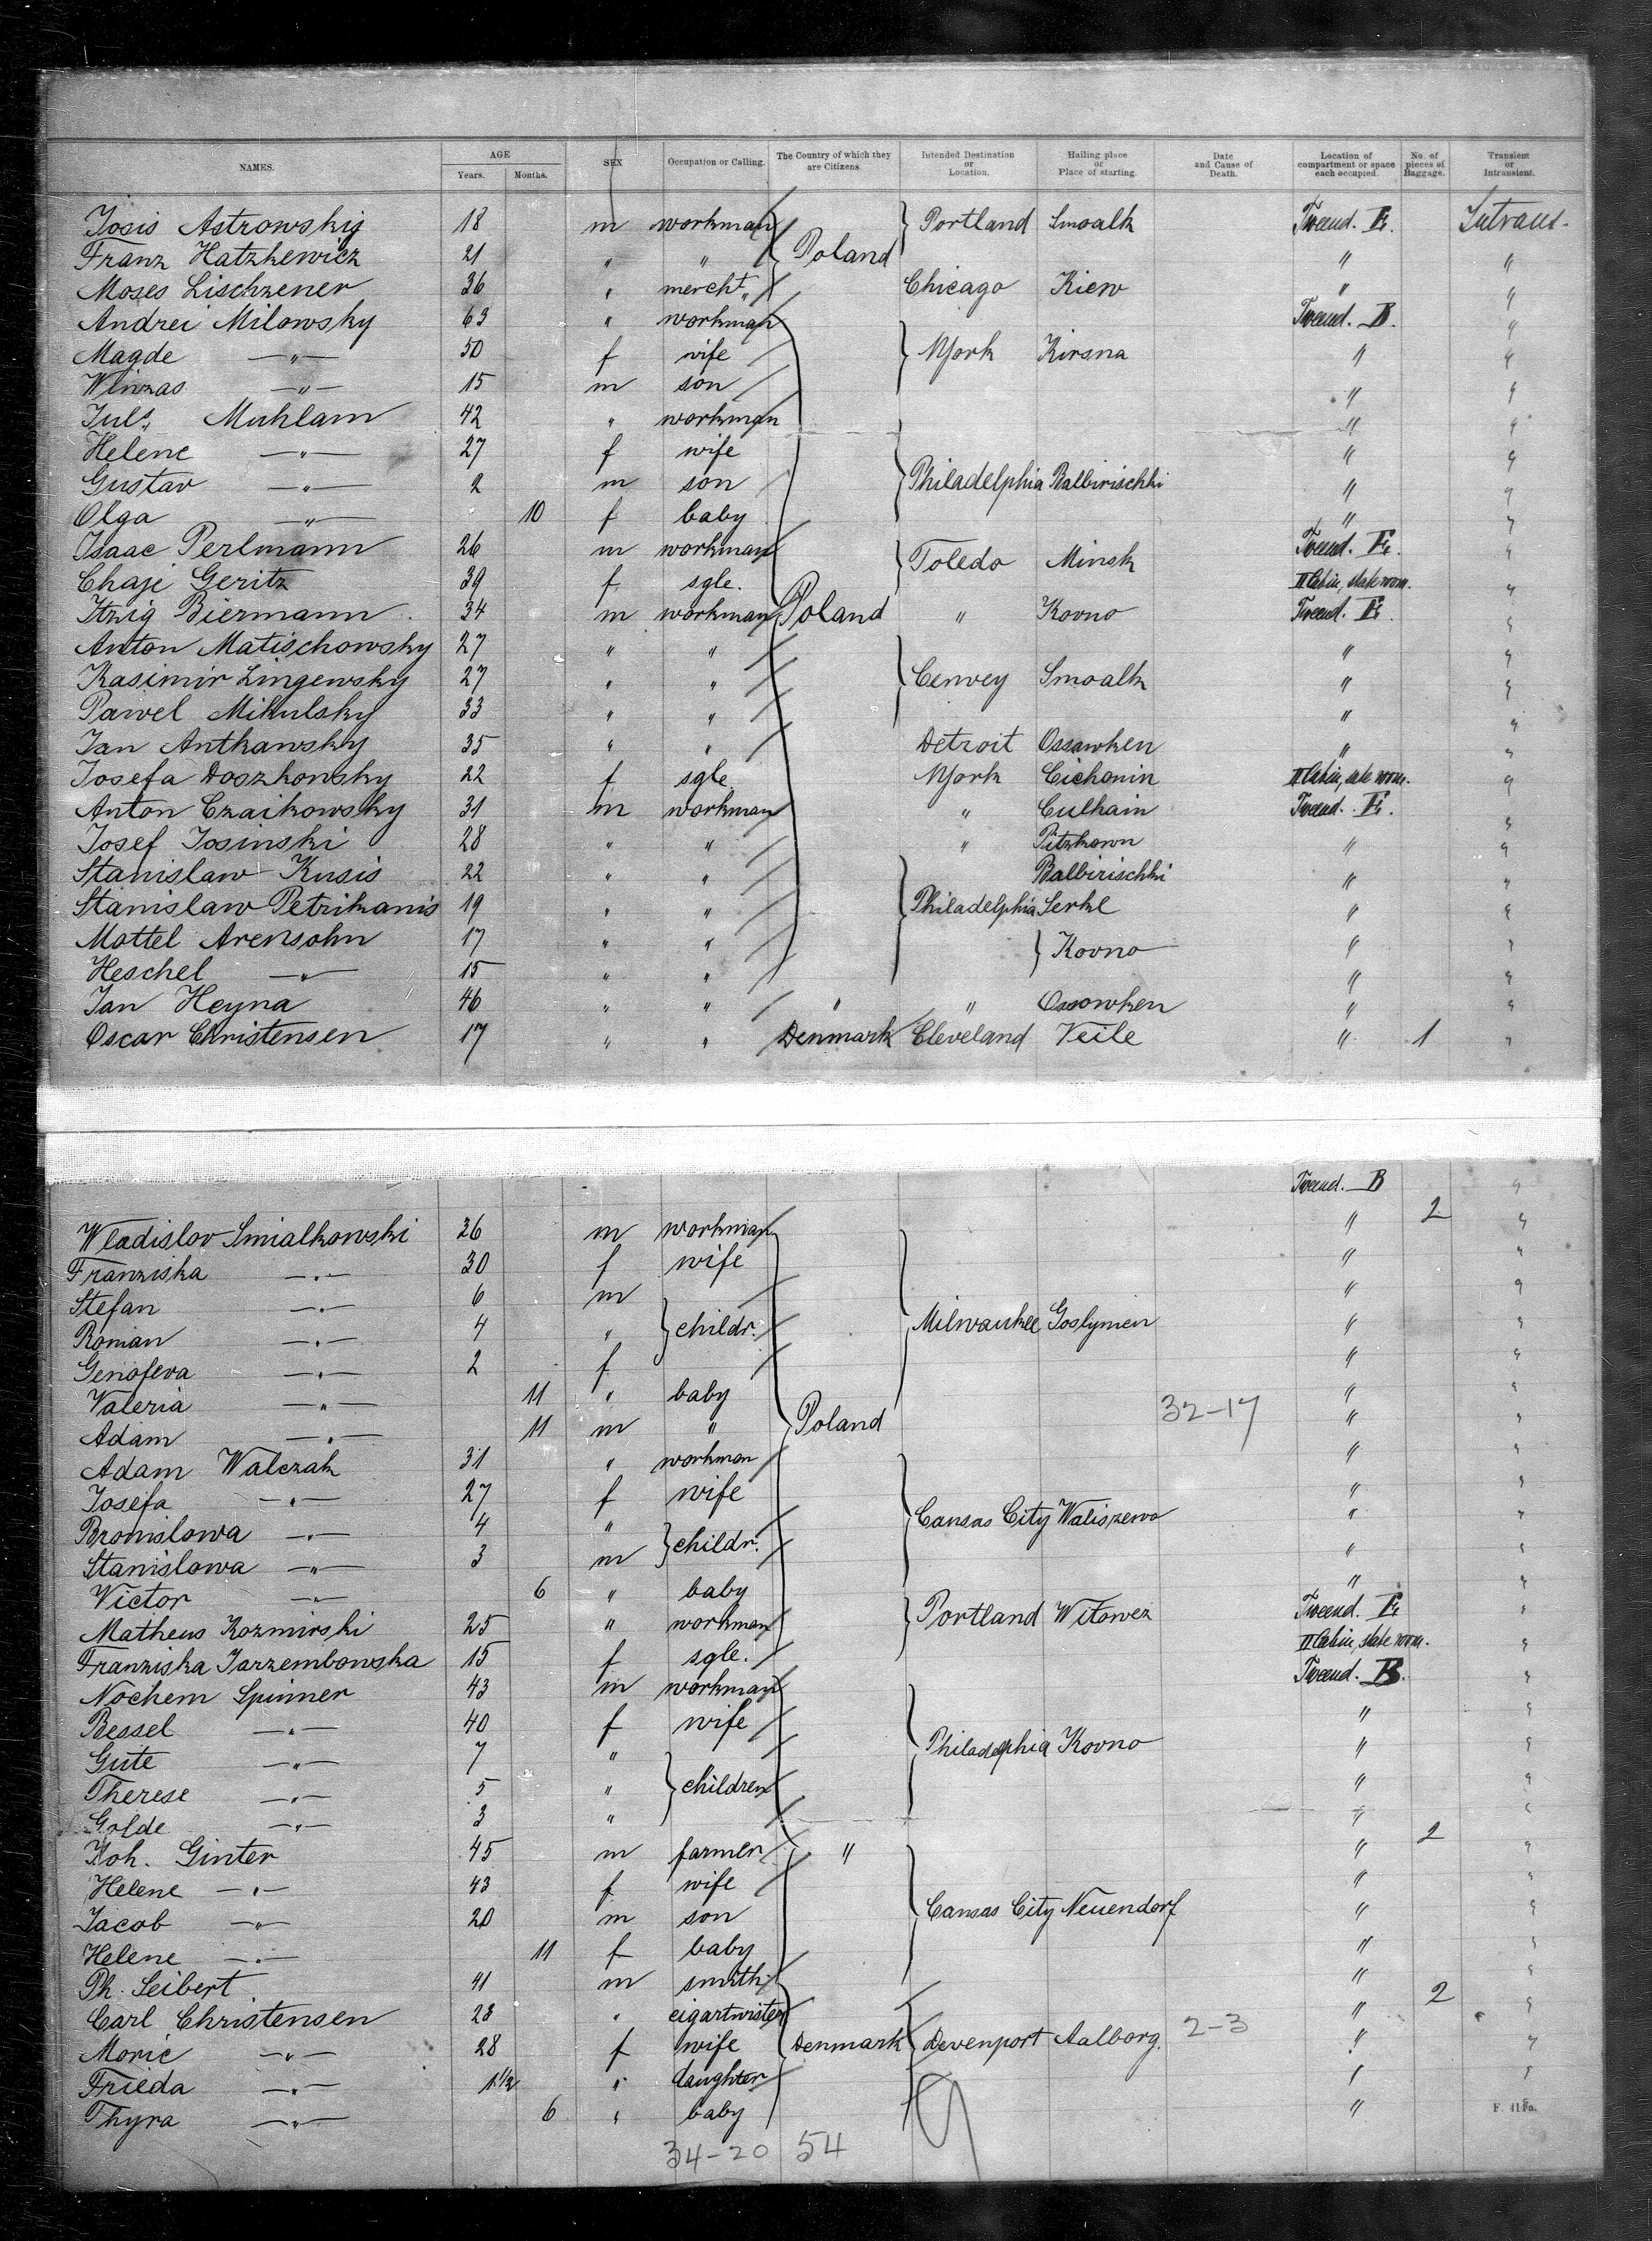 NAMES. AGE Years. Months. SEX Occupation or Calling. The Country of which they are Citizens. Intended Destination or Location. Hailing place or Place of starting. Date and Cause of Death. Location of compartment or space each occupied. No. of pieces of Baggage. Transient or Intransient.
Josis Astrowskij 18 m workman Portland Smoalk Tweend. E. Intrans.
Franz Hatzkewicz 21 " " Poland " "
Moses Lischzener 36 " mercht. Chicago Kiew " "
Andrei Milowsky 63 " workman Tweend. B. "
Magde —"— 50 f wife NYork Kirsna " "
Winzas —"— 15 m son " "
Juls. Muhlam 42 " workman " "
Helene —"— 27 f wife " "
Gustav —"— 2 m son Philadelphia Balbirischki " "
Olga —"— 10 f baby " "
Isaac Perlmann 26 m workman Toledo Minsk Tweend. E. "
Chaje Geritz 39 f sgle. II Cabin, state room. "
Itzig Biermann 34 m workman Poland " Kovno Tweend. E. "
Anton Matischowsky 27 " " " "
Kasimir Lingewsky 27 " " Cenvey Smoalk " "
Pawel Mikulsky 33 " " " "
Jan Antkawsky 35 " " Detroit Ossowken " "
Josefa Doszkowsky 22 f sgle NYork Cichonin II Cabin, state room. "
Anton Czaikowsky 31 m workman " Culhain Tweend. E. "
Josef Josinski 28 " " " Pitzkown " "
Stanislaw Kusis 22 " " Balbirischki " "
Stanislaw Petrikanis 19 " " Philadelphia Serkl " "
Mottel Arensohn 17 " " Kovno " "
Heschel —"— 15 " " " "
Jan Heyna 46 " " " " Ossowken " "
Oscar Christensen 17 " " Denmark Cleveland Veile " 1 "
Tweend. B "
Wladislav Smialkowski 26 m workman " 2 "
Franziska —"— 30 f wife " "
Stefan —"— 6 m " "
Roman —"— 4 " childr. Milwaukee Goslymien " "
Genofeva —"— 2 f " "
Valeria —"— 11 " baby " "
Adam —"— 11 m " Poland 32-17 " "
Adam Walczak 31 " workman " "
Josefa —"— 27 f wife " "
Bronislowa —"— 4 " childr. Cansas City Waliszewo " "
Stanislowa —"— 3 m " "
Victor —"— 6 " baby " "
Matheus Kozmirski 25 " workman Portland Witowez Tweend. E. "
Franziska Jarzembowska 15 f sgle. II Cabin, state room. "
Nochem Spinner 43 m workman Tweend. B. "
Bessel —"— 40 f wife " "
Gute —"— 7 " Philadelphia Kovno " "
Therese —"— 5 " children " "
Golde —"— 3 " " "
Joh. Ginter 45 m farmer " " 2 "
Helene —"— 43 f wife " "
Jacob —"— 20 m son Cansas City Neuendorf " "
Helene —"— 11 f baby " "
Ph. Seibert 41 m smith " "
Carl Christensen 23 " cigartwister " 2 "
Marie —"— 28 f wife Denmark Devenport Aalborg. 2-3 " "
Frieda —"— 1 1/2 " daughter " "
Thyra —"— 6 " baby "
34-20 54